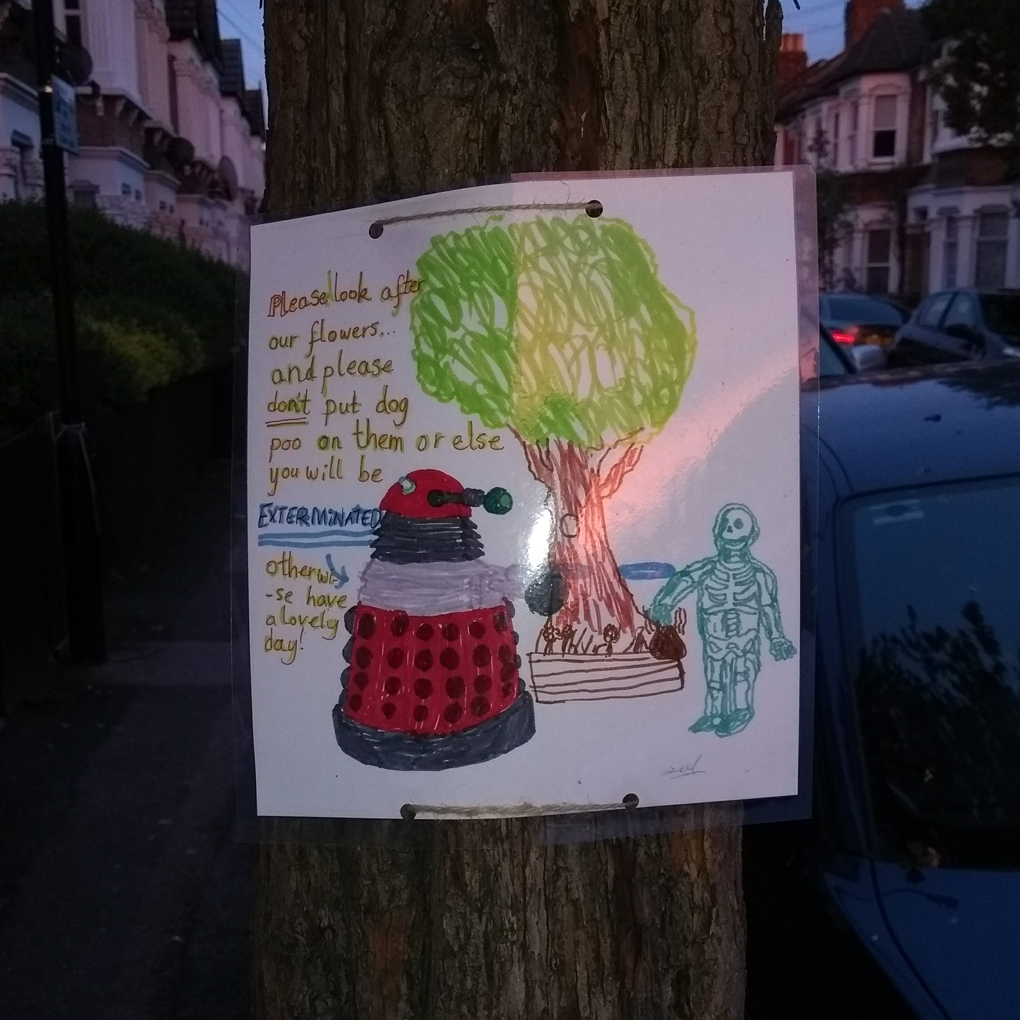 Please look after
our flowers...
and please
don't put dog
poo on them or else
you will be
EXTERMINATED
otherwi
-se have
a lovely
day!